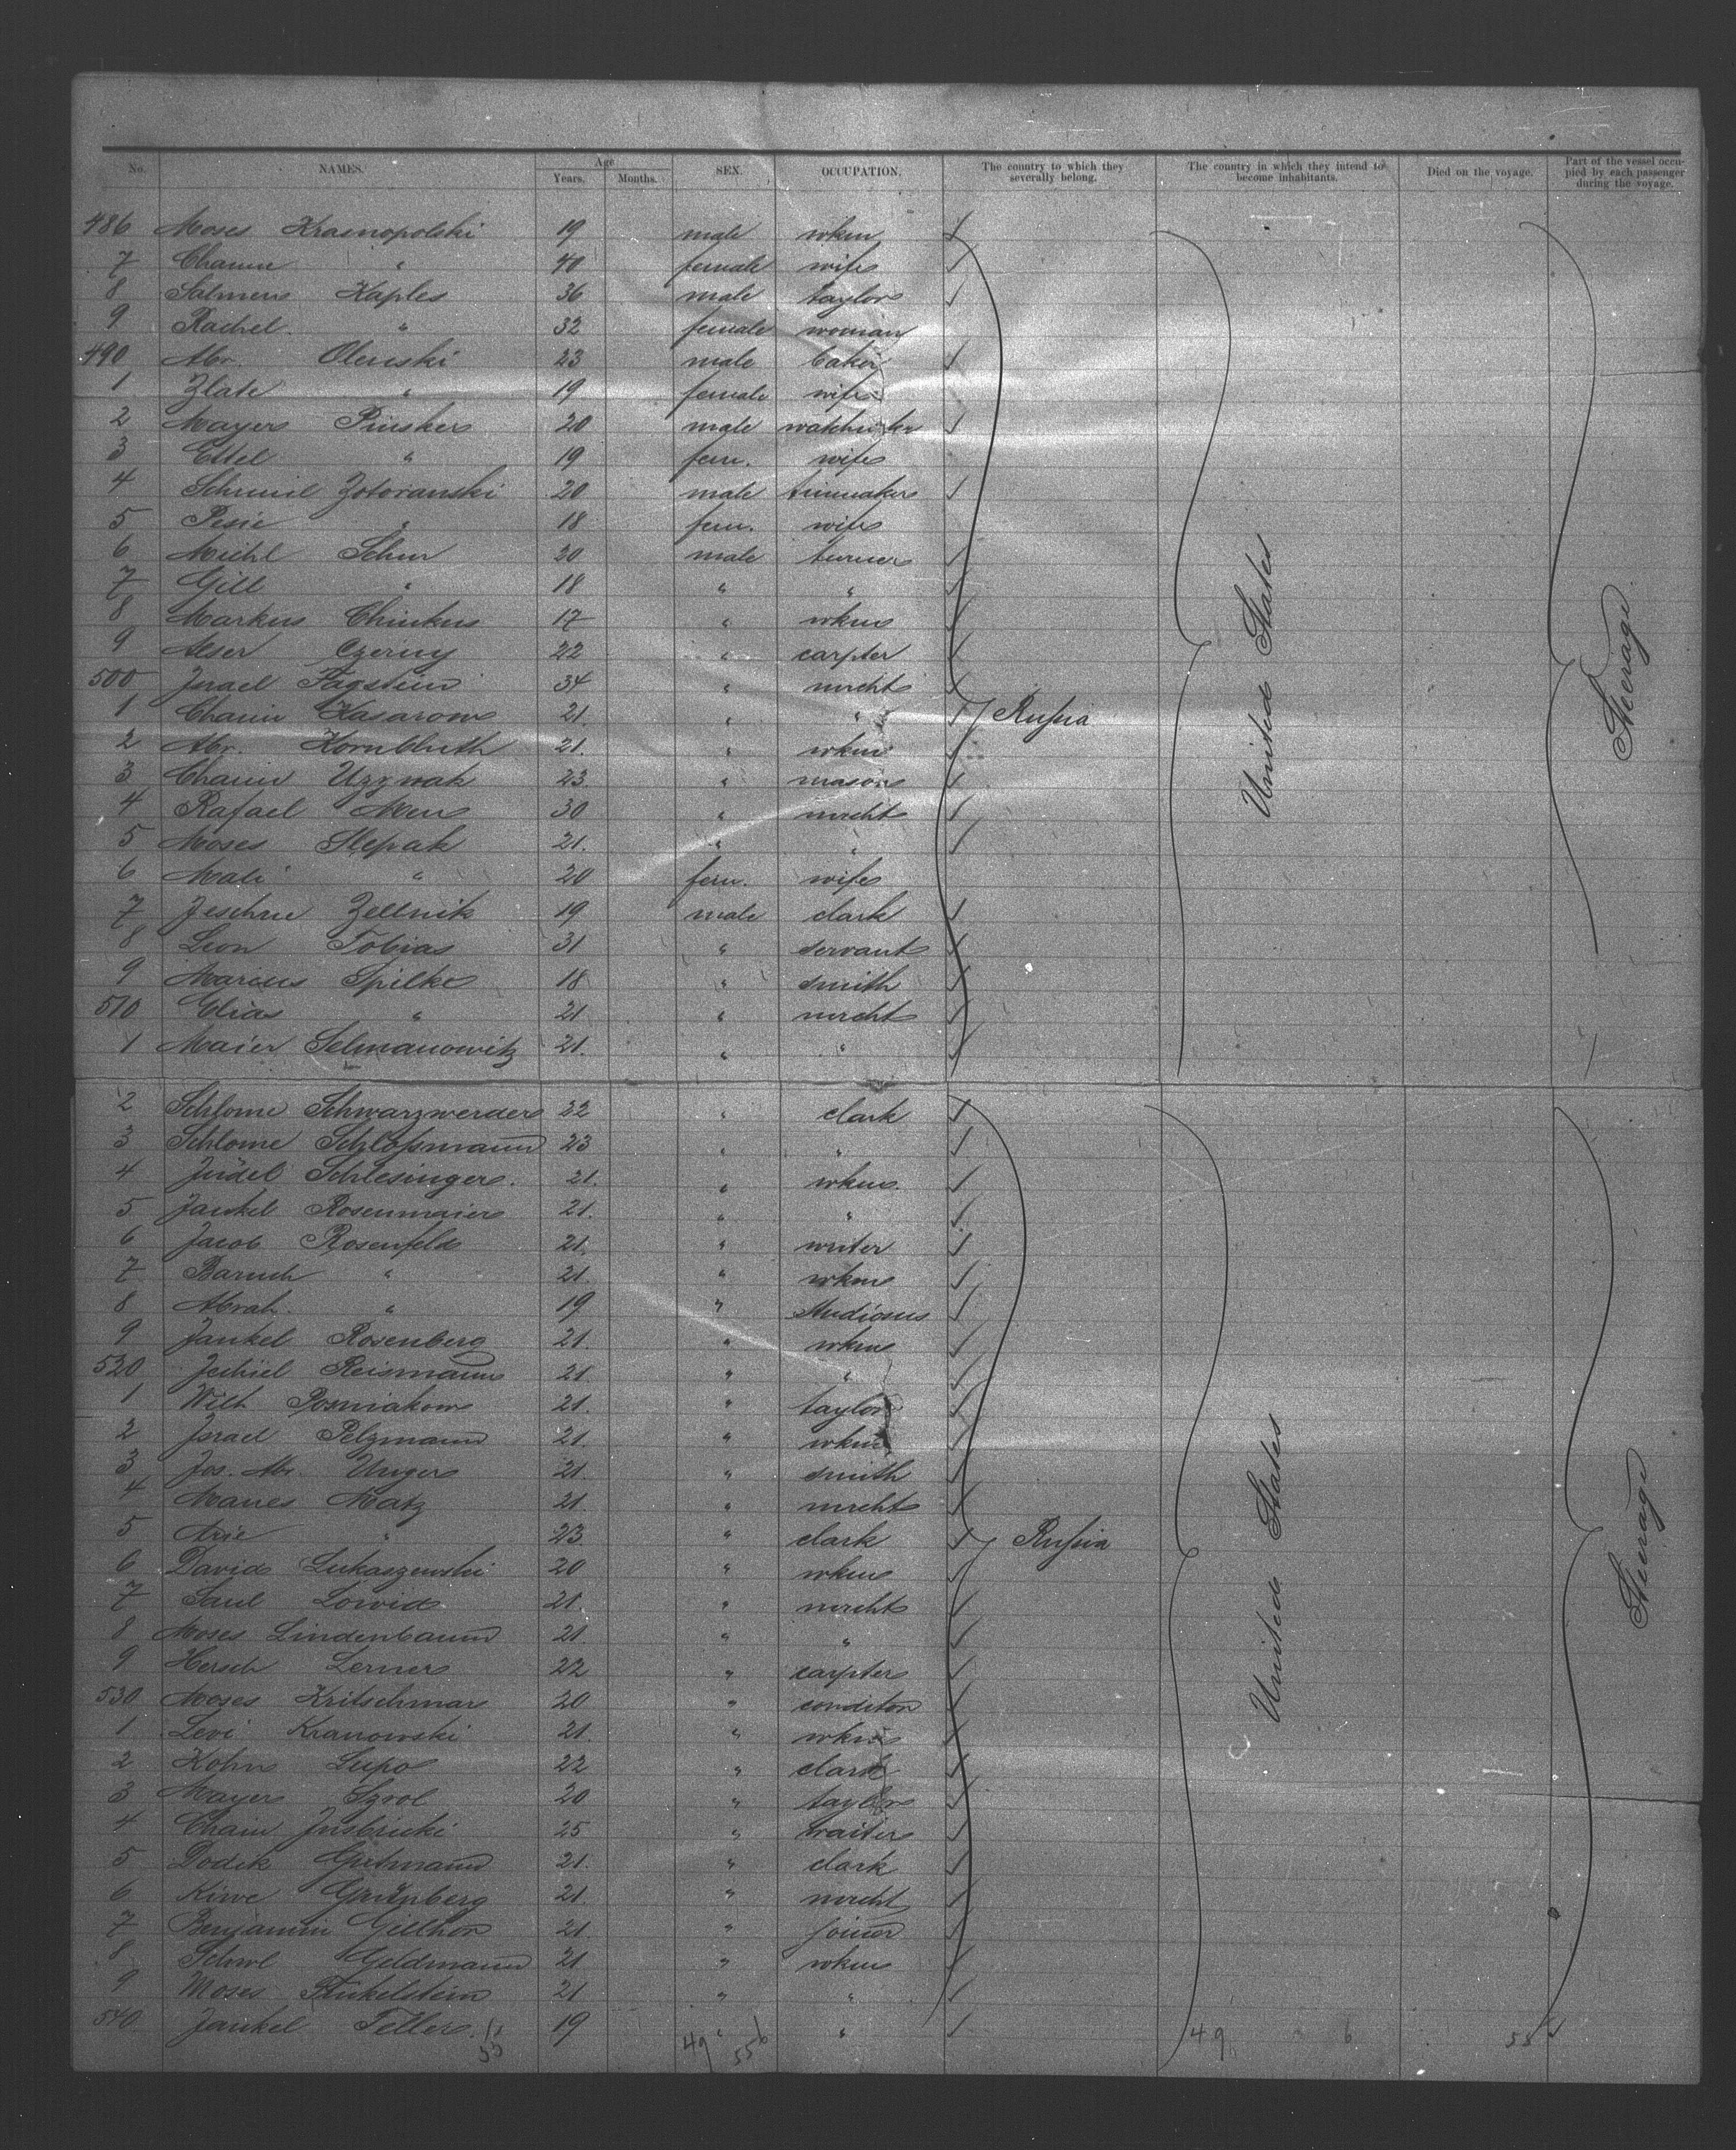 No. NAMES. Age Years. Months. SEX. OCCUPATION. The country to which they severally belong. The country in which they intend to become inhabitants. Died on the voyage. Part of the vessel occupied by each passenger during the voyage.
486 Moses Krasnopolski 19 male wkm
7 Chaum " 40 female wife
8 Salmen Kaples 36 male taylor
9 Rachel " 32 female woman
490 Abr. Olenski 23 male baker
1 Zlate " 19 female wife
2 Mayer Pinsker 20 male watchmaker
3 Ettel " 19 fem. wife
4 Schmil Zotoranski 20 male tinmaker
5 Pesie " 18 fem. wife
6 Michl Schur 20 male turner
7 Gill " 18 " "
8 Markus Chinkus 17 " wkm
9 Aser Czerny 22 " carpter
500 Israel Fagstein 34 " mrcht
1 Chaim Kasarow 21. " " Russia
2 Abr. Kornbluth 21. " wkm
3 Chaim 23 " mason
4 Rafael Men 30 " mrcht
5 Moses Slepak 21. " "
6 Mali " 20 fem. wife
7 Jeschue Zellnik 19 male clark
8 Leon Tobias 31 " servant
9 Marcus Spilke 18 " smith
510 Elias " 21 " mrcht
1 Maier Selmanowitz 21. " "
United States
Steerage
2 Schlome Schwarzwerder 22 " clark
3 Schlome Schlossmann 23 " "
4 Judel Schlesinger. 21. " wkm.
5 Jankel Rosenmaier 21. " "
6 Jacob Rosenfeld 21. " writer
7 Baruch " 21. " wkm
8 Abrah. " 19 " Studiosus
9 Jankel Rosenberg 21. " wkm
520 Jechiel Reismann 21. " "
1 Wilh. Posniakow 21. " taylor
2 Israel Pelzmann 21. " wkm
3 Jos. Abr. Unger 21. " smith
4 Manes Matz 21. " mrcht
5 Arie " 23 " clark Russia
6 David Lukaszewski 20 " wkm
7 Saul Lowid 21. " mrcht
8 Moses Lindenbaum 21 " "
9 Hersch Lerner 22 " carpter
530 Moses Kritschmar 20 " conditor
1 Levi Kranowski 21. " wkm
2 Kohn Lupo 22 " clark
3 Mayer Szrol 20 " taylor
4 Chaim 25 " waiter
5 Dodik Gutmann 21. " clark
6 Kiwe Grünberg 21. " mrcht
7 Benjamin Gillhor 21. " joiner
8 Schwl Geldmann 21 " wkm
9 Moses Finkelstein 21 " "
540 Jankel Teller. 19 " "
United States
Steerage
49 55 6 49 6 55